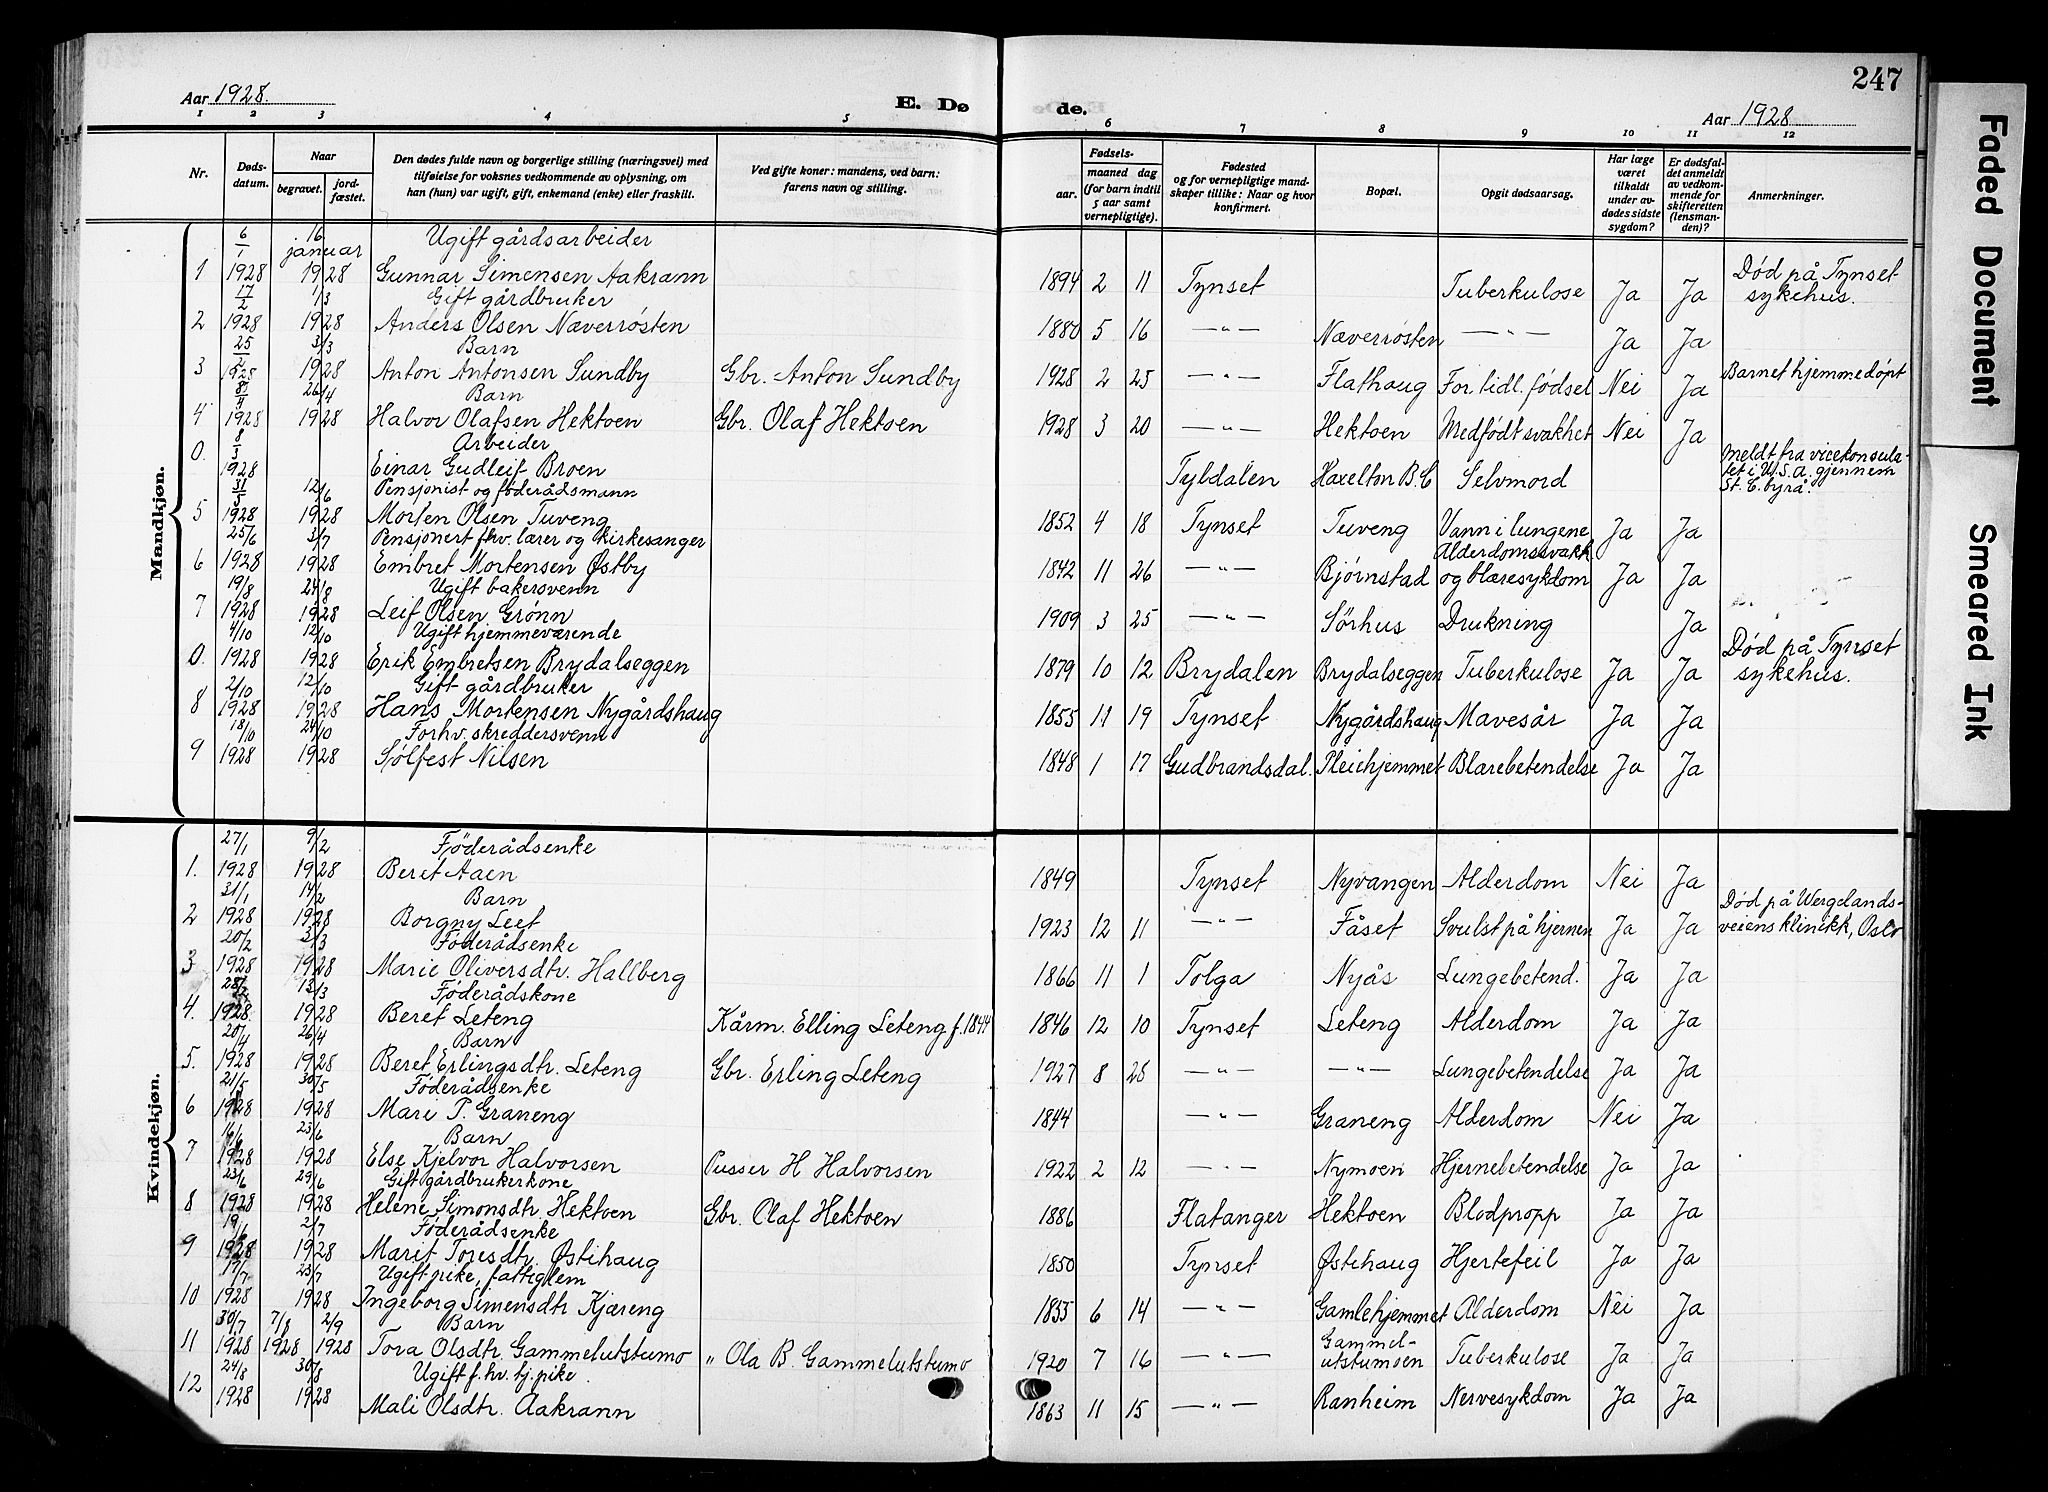 Aar 1928.
E. Dø
1 2 3 4 5
Nr.
Døds-
datum.
Naar
begravet.
jord-
fæstet.
Den dødes fulde navn og borgerlige stilling (næringsvei) med
tilføielse for voksnes vedkommende av oplysning, om
han (hun) var ugift, gift, enkemand (enke) eller fraskilt.
Ved gifte koner: mandens, ved barn:
farens navn og stilling.
de.
247
Aar 1928
6 7 8 9 10 11 12
Fødsels-
aar.
maaned dag
(for barn indtil
5 aar samt
vernepligtige).
Fødested
og for vernepligtige mand-
skaper tillike: Naar og hvor
konfirmert.
Bopæl.
Opgit dødsaarsag.
Har læge
været
tilkaldt
under av-
dødes sidste
sygdom?
Er dødsfal-
det anmeldt
av vedkom-
mende for
skifteretten
(lensman-
den)?
Anmerkninger.
Mandkjøn.
6/1 16 januar Ugift gårdsarbeider
1 1928 1928 Gunnar Simensen Aakrann 1894 2 11 Tynset Tuberkulose Ja Ja Død på Tynset sykehus.
17/2 1/3 Gift gårdbruker
2 1928 1928 Anders Olsen Næverrøsten 1880 5 16 —"— Næverrøsten —"— Ja Ja
25/2 3/3 Barn
3 1928 1928 Anton Antonsen Sundby Gbr. Anton Sundby 1928 2 25 —"— Flathaug For tidl. fødsel Nei Ja Barnet hjemmedøpt
8/4 26/4 Barn
4 1928 1928 Halvor Olafsen Hektoen Gbr. Olaf Hektoen 1928 3 20 —"— Hektoen Medfødt svakhet Nei Ja
8/3 Arbeider
0. 1928 Einar Gudleif Broen Tyldalen Haxelton B.C Selvmord Meldt fra vicekonsula- tet i U.S.A. gjennem St. C. byrå.
31/5 12/6 Pensjonist og føderådsmann
5 1928 1928 Morten Olsen Tuveng 1852 4 18 Tynset Tuveng Vann i lungene Ja Ja
25/6 3/7 Pensjonert fhv. lærer og kirkesanger
6 1928 1928 Embret Mortensen Østby 1842 11 26 —"— Bjørnstad Alderdomssvakk. og blæresykdom Ja Ja
19/8 24/8 Ugift bakersvenn
7 1928 1928 Leif Olsen Grønn 1909 3 25 —"— Sørhus Drukning Ja
4/10 12/10 Ugift hjemmeværende
0. 1928 1928 Erik Embretsen Brydalseggen 1879 10 12 Brydalen Brydalseggen Tuberkulose Ja Ja Død på Tynset sykehus.
2/10 12/10 Gift gårdbruker
8 1928 1928 Hans Mortensen Nygårdshaug 1855 11 19 Tynset Nygårdshaug Mavesår Ja Ja
18/10 24/10 Forhv. skreddersvenn
9 1928 1928 Sjølfest Nilsen 1848 1 17 Gudbrandsdal. Pleiehjemmet Blærebetendelse Ja Ja
Kvindekjøn.
27/1 9/2 Føderådsenke
1. 1928 1928 Beret Aaen 1849 Tynset Nyvangen Alderdom Nei Ja
31/1 14/2 Barn
2 1928 1928 Borgny Leet 1923 12 11 —"— Fåset Svulst på hjernen Ja Ja Død på Wergelands- veiens klinikk, Oslo
20/2 3/3 Føderådsenke
3 1928 1928 Marie Oliversdtr. Hallberg 1866 11 1 Tolga Nyås Lungebetend. Ja Ja
28/2 13/3 Føderådskone
4. 1928 1928 Beret Leteng Kårm. Elling Leteng f. 1844 1846 12 10 Tynset Leteng Alderdom Ja Ja
20/4 26/4 Barn
5. 1928 1928 Beret Erlingsdtr. Leteng Gbr. Erling Leteng 1927 8 28 —"— —"— Lungebetendelse Ja Ja
21/5 30/5 Føderådsenke
6 1928 1928 Mari P. Graneng 1844 —"— Graneng Alderdom Nei Ja
16/6 23/6 Barn
7 1928 1928 Else Kjelvor Halvorsen Pusser H Halvorsen 1922 2 12 —"— Nymoen Hjernebetendelse Ja Ja
23/6 29/6 Gift gårdbrukerkone
8 1928 1928 Helene Simonsdtr. Hektoen Gbr. Olaf Hektoen 1886 Flatanger Hektoen Blodpropp Ja Ja
19/6 2/7 Føderådsenke
9 1928 1928 Marit Toresdtr. Østihaug 1850 Tynset Østihaug Hjertefeil Ja Ja
17/7 23/7 Ugift pike, fattiglem
10 1928 1928 Ingeborg Simensdtr Kjæreng 1855 6 14 —"— Gamlehjemmet Alderdom Nei Ja
30/7 7/8 2/9 Barn
11 1928 1928 1928 Tora Olsdtr. Gammelutstumo " Ola B. Gammelutstumo 1920 7 16 —"— Gammel- utstumoen Tuberkulose Ja Ja
24/8 30/8 Ugift f. hv. hj. pike.
12 1928 1928 Mali Olsdtr. Aakrann 1863 11 15 —"— Ranheim Nervesykdom Ja Ja
Faded Document
Smeared Ink